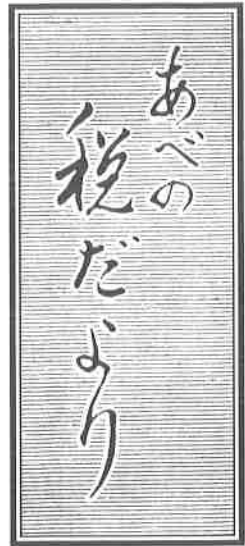 あべの
税だより